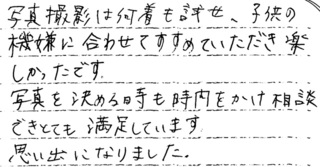 写真撮影は何着も試せ、子供の
機嫌に合わせてすすめていただき楽
しかったです。
写真を決める時も時間をかけ相談
できとても満足しています。
思い出になりました。